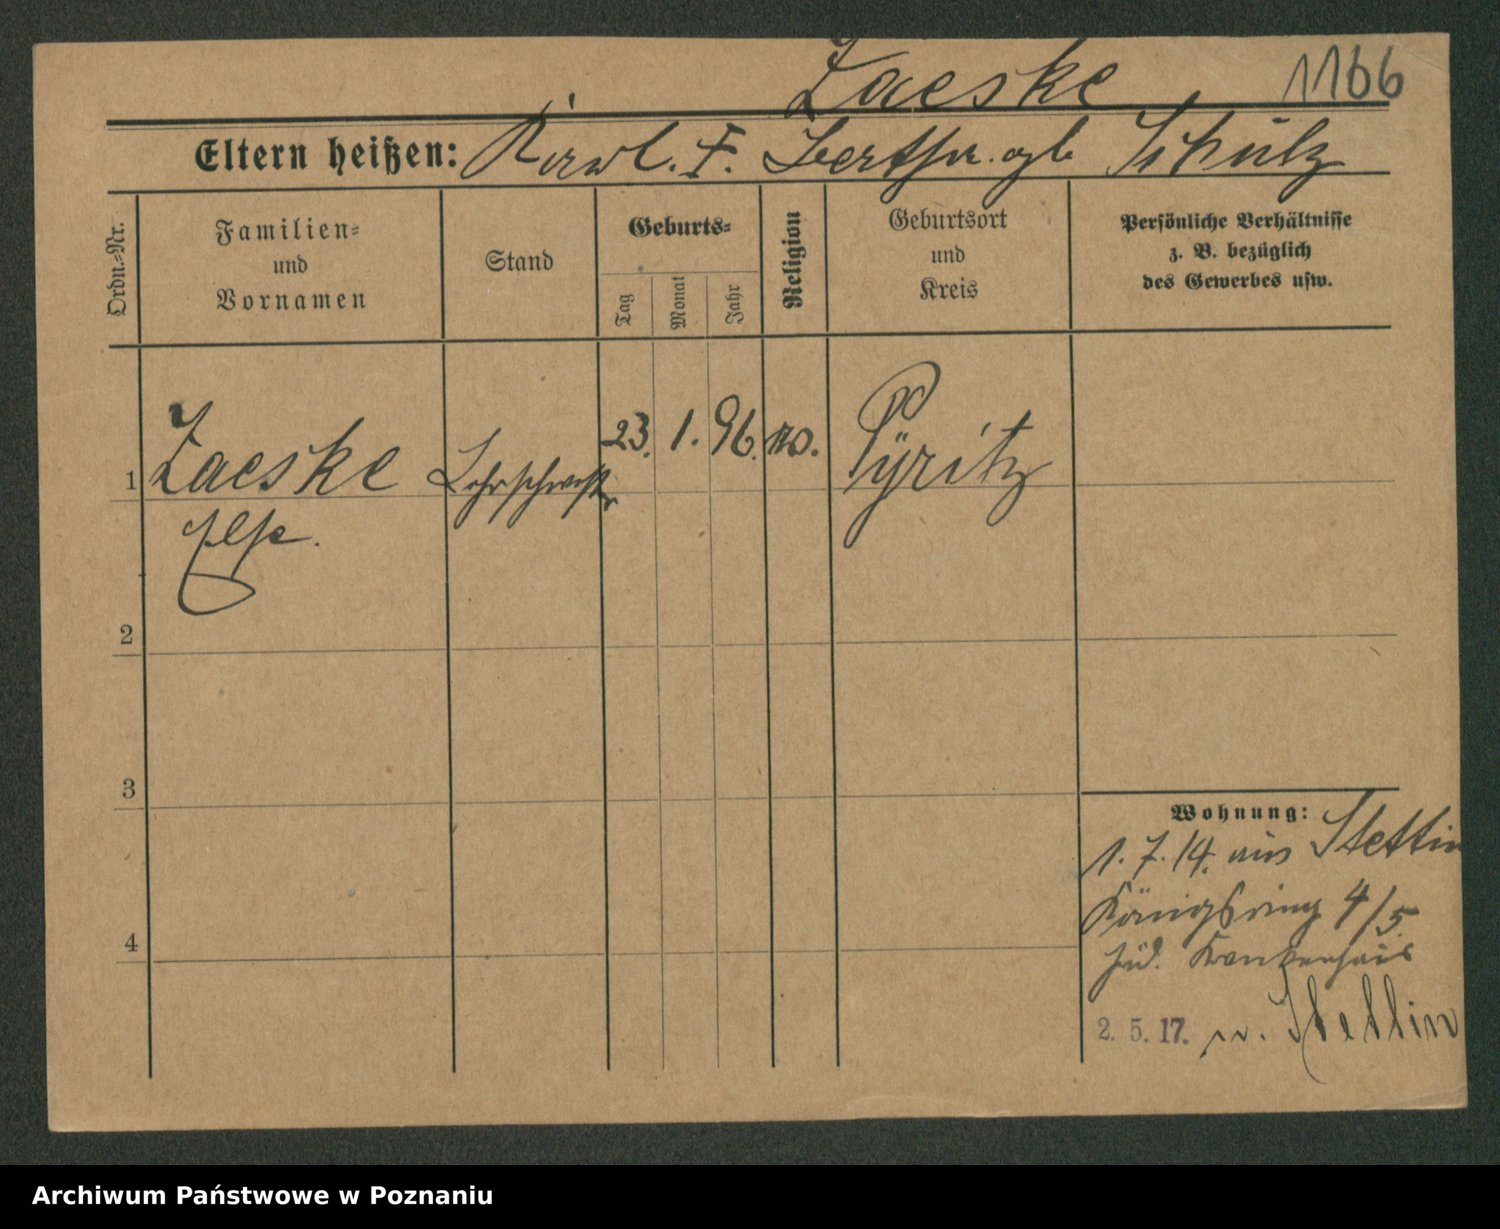 Zaeske 1166
Eltern heißen: Karl. F. Bertha. geb Schulz
Ordn.-Nr.
Familien-
und
Vornamen
Stand
Geburts-
Tag
Monat
Jahr
Religion
Geburtsort
und
Kreis
Persönliche Verhältnisse
z. B. bezüglich
des Gewerbes usw.
1 Zaeske Lehrschwest 23. 1. 96. Pyritz
Else.
2
3
4
Wohnung:
1. 7. 14. aus Stettin
Königsring 4/5
jüd. Krankenhaus
2. 5. 17. n. Stettin
Archiwum Państwowe w Poznaniu